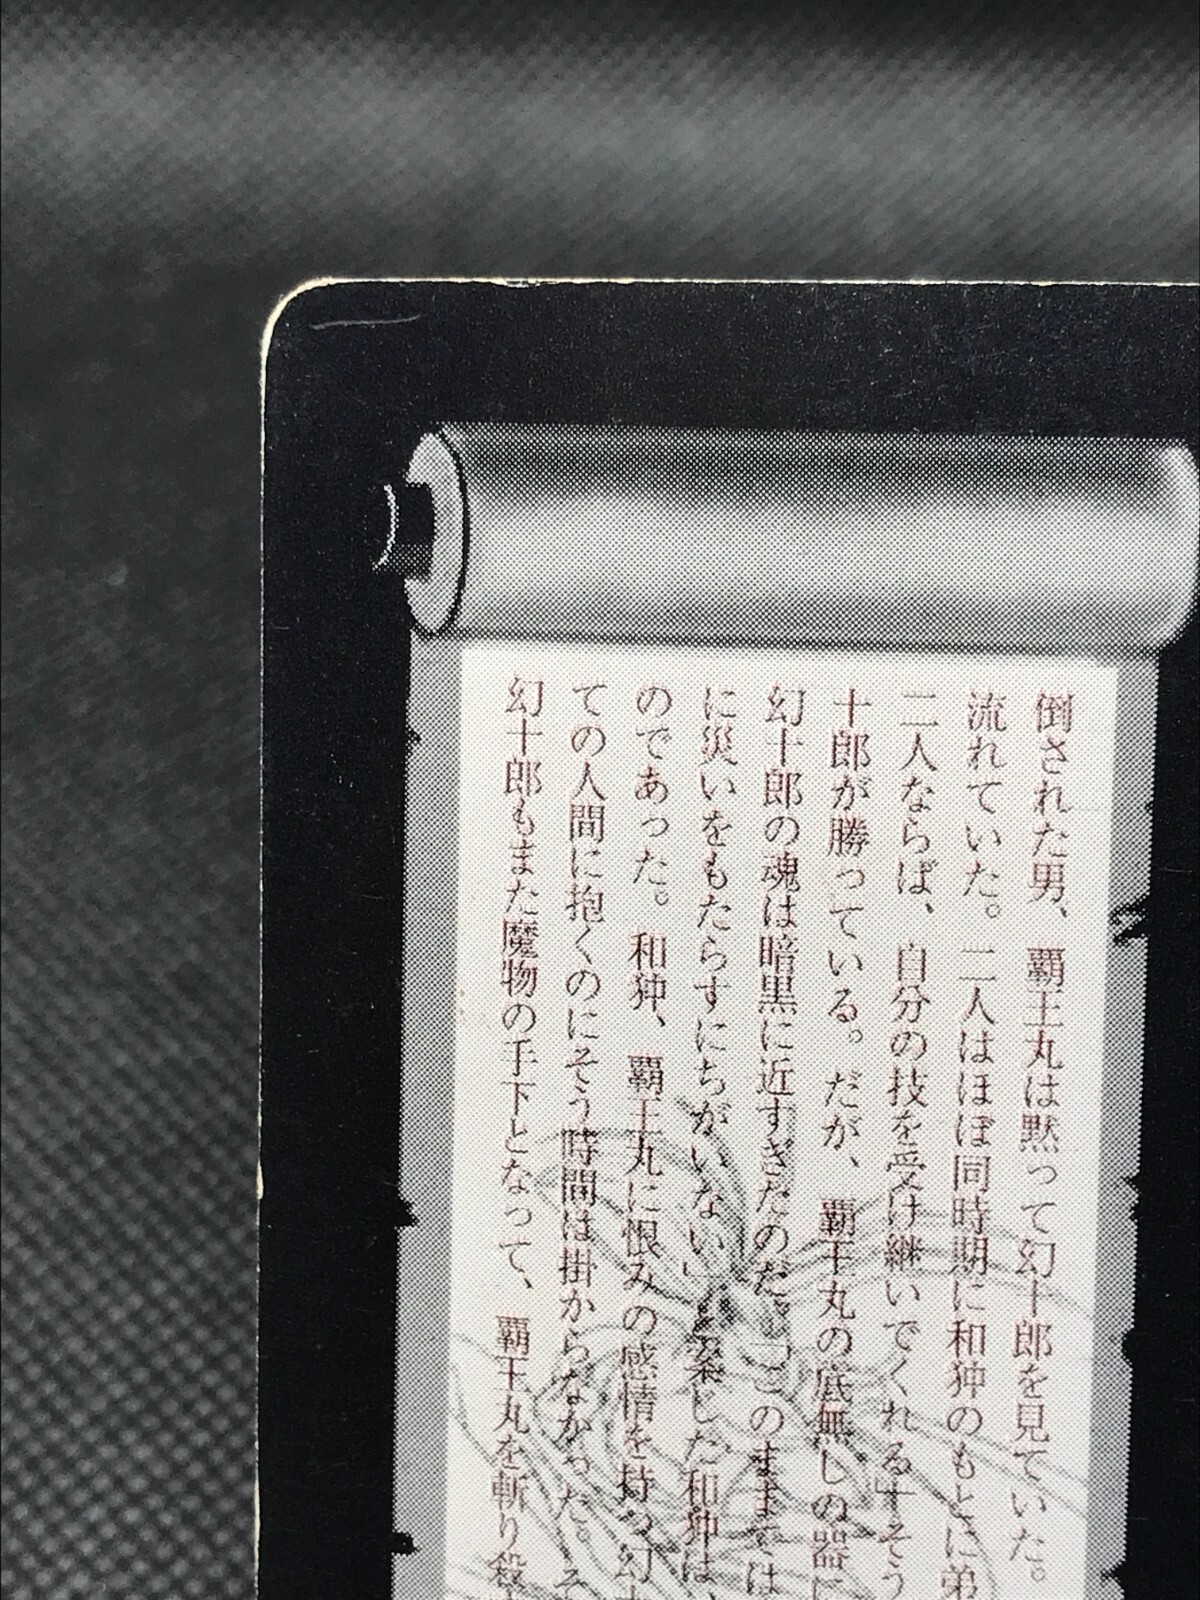 倒された男、覇王丸は黙って幻十郎を見ていた。
流れていた。二人はほぼ同時期に和狆のもとに弟
二人ならば、自分の技を受け継いでくれる」そう
十郎が勝っている。だが、覇王丸の底無しの器に
幻十郎の魂は暗黒に近すぎたのだ。「このままでは
に災いをもたらすにちがいない」と案じた和狆は、
のであった。和狆、覇王丸に恨みの感情を持つ幻十
ての人間に抱くのにそう時間は掛からなかった。そ
幻十郎もまた魔物の手下となって、覇王丸を斬り殺